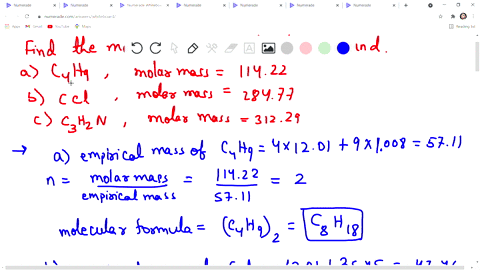 Numerade Numerade Numerade Numerade Numerade Numerade
numerade.com
Find the m ind.
a) C4H9 , molar mass = 114.22
b) CCl , molar mass = 284.77
c) C3H2N , molar mass = 312.29
→ a) empirical mass of C4H9 = 4×12.01 + 9×1.008 = 57.11
n = molar mass / empirical mass = 114.22 / 57.11 = 2
molecular formula = (C4H9)2 = C8H18